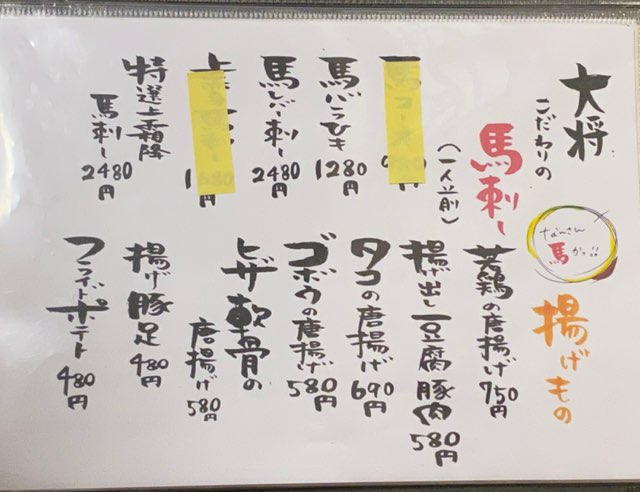 大将
こだわりの
馬刺し
(一人前)
馬バラひき
1280円
馬レバー刺し
2480円
特選上霜降
馬刺し
2480円
なんさん
馬かっ!!
揚げもの
若鶏の唐揚げ
750円
揚げ出し豆腐豚肉
580円
タコの唐揚げ
690円
ゴボウの唐揚げ
580円
ヒザ軟骨の
唐揚げ
580円
揚げ豚足
480円
フライドポテト
480円